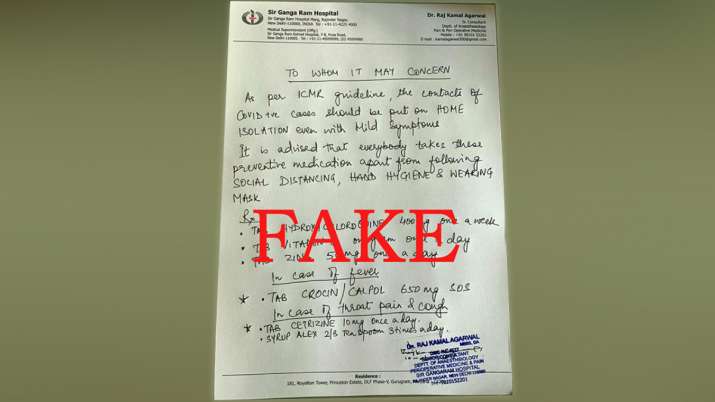 Sir Ganga Ram Hospital
Sir Ganga Ram Hospital Marg, Rajinder Nagar,
New Delhi-110060, INDIA Tel : +91-11-4225 4000
Medical Superintendent (Offg.)
Dr. Raj Kamal Agarwal
Sr. Consultant
Deptt. of Anaesthesiology
Pain & Peri Operative Medicine
TO WHOM IT MAY CONCERN
As per ICMR guideline, the contacts of
COVID +ve cases should be put on HOME
ISOLATION even with Mild Symptoms
It is advised that everybody takes these
preventive medication apart from following
SOCIAL DISTANCING, HAND HYGIENE & WEARING
MASK
Rx
• TAB HYDROXYCHLOROQUINE 400mg once a week
• TAB VITAMIN once a day
• TAB ZINC 50mg once a day
FAKE
In case of fever
* • TAB CROCIN/CALPOL 650mg SOS
In case of throat pain & cough
* • TAB CETRIZINE 10mg once a day.
• SYRUP ALEX 2/3 Teaspoon 3 times a day.
Dr. RAJ KAMAL AGARWAL
DEPTT OF ANAESTHESIOLOGY
PERIOPERATIVE MEDICINE & PAIN
SIR GANGARAM HOSPITAL
Residence :